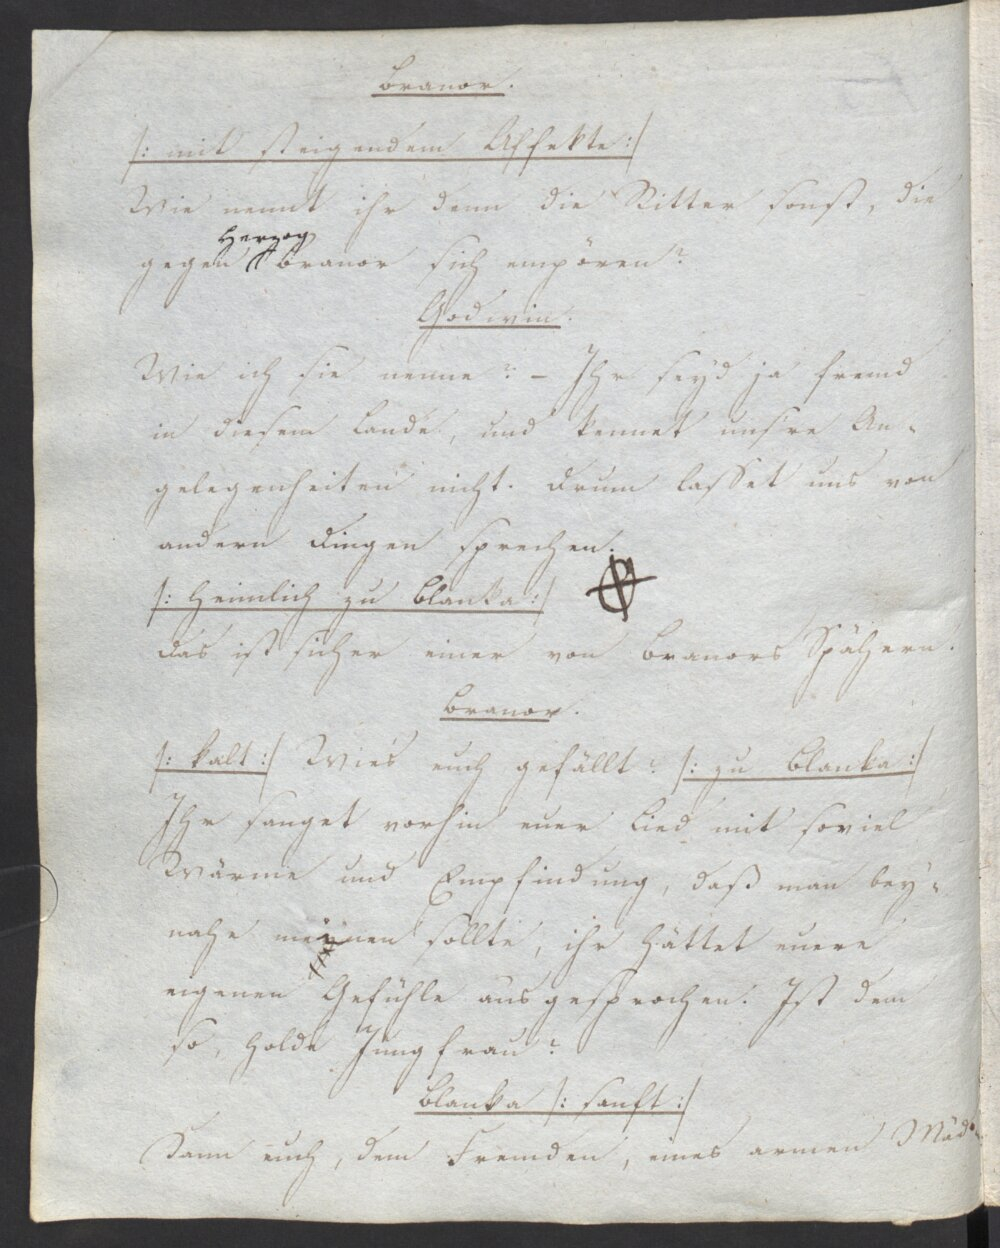 Branor.
/: mit steigendem Affekte :/
Wie nennt ihr denn die Ritter sonst, die
Herzog
gegen Branor sich empören?
Godwin.
Wie ich sie nenne? – Ihr seyd ja fremd
in diesem Lande, und kennet uns're An-
gelegenheiten nicht. Drum lasset uns von
andern Dingen sprechen.
/: Heimlich zu Blanka :/
Das ist sicher einer von Branors Spähern.
Branor.
/: kalt :/ Wie's euch gefällt? /: zu Blanka :/
Ihr sanget vorhin euer Lied mit soviel
Wärme und Empfindung, daß man bey-
nahe meinen sollte, ihr hättet euere
eigenen Gefühle ausgesprochen. Ist dem
so, holde Jungfrau?
Blanka /: sanft :/
Kann euch, dem Fremden, eines armen Mäd-